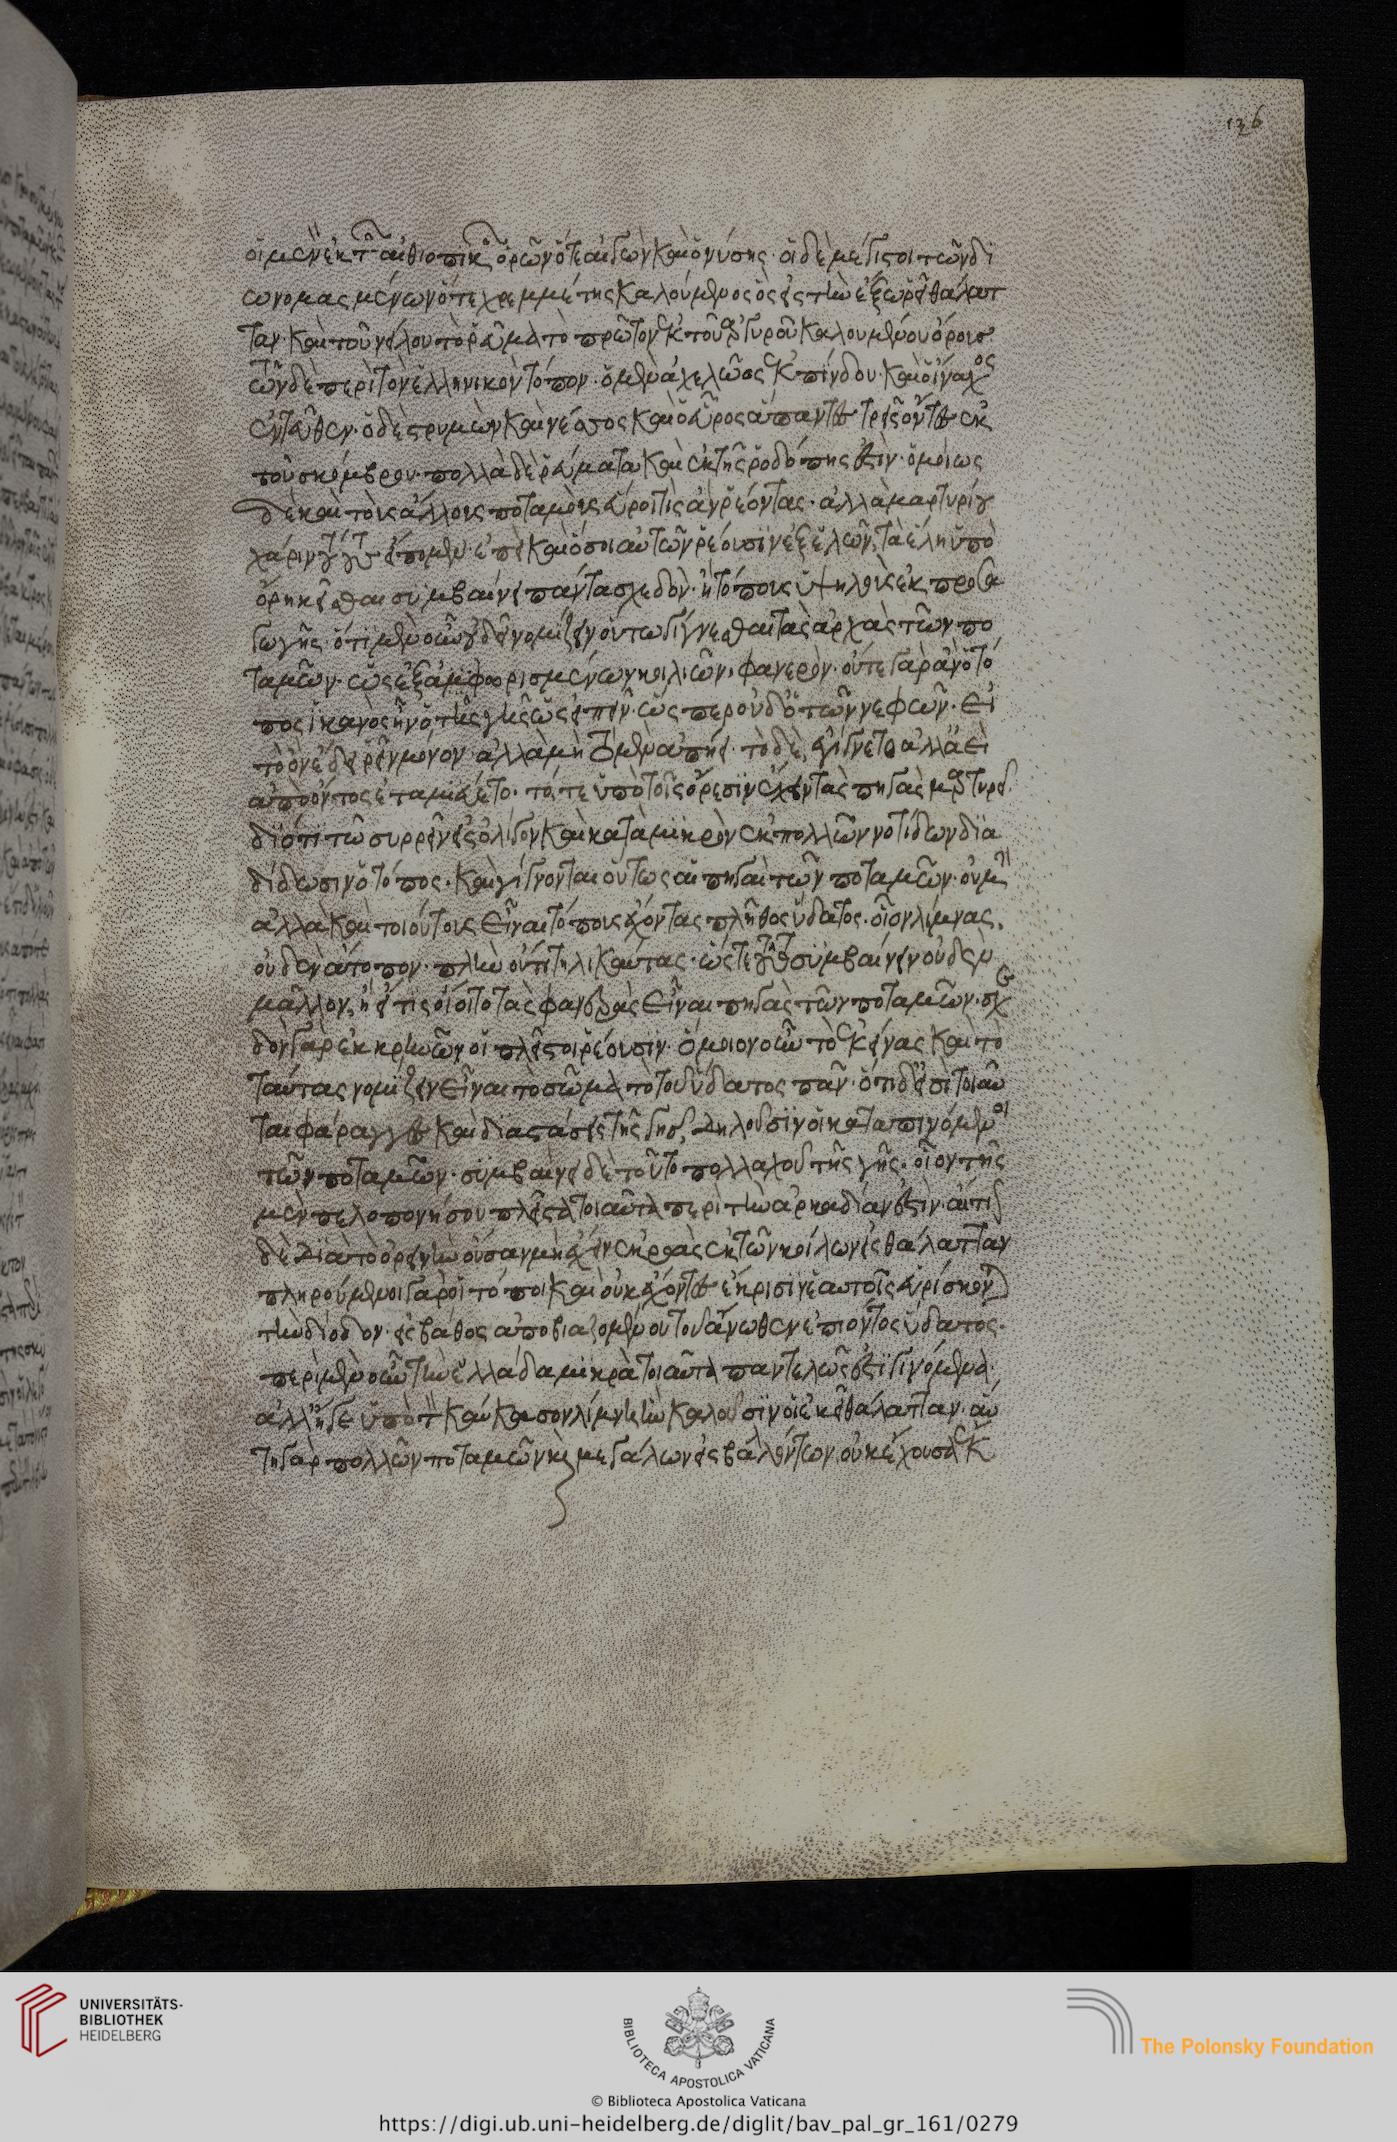 οἱ μὲν ἐκ τῶν αἰθιοπικῶν ὀρῶν ὅτε αἰγὼν καὶ ὁ νύσης· οἱ δὲ μέγιστοι τῶν δι
ωνομασμένων ὅτε χρεμμέτης καλούμενος ὃς εἰς τὴν ἔξω ῥεῖ θάλατ
ταν καὶ τοῦ νείλου τὸ ῥεῦμα τὸ πρῶτον ἐκ τοῦ ἀργυροῦ καλουμένου ὄρους
τῶν δὲ περὶ τὸν ἑλληνικὸν τόπον· ὁ μὲν ἀχελῶος ἐκ πίνδου· καὶ ὁ ἴναχος
ἐντεῦθεν· ὁ δὲ στρυμὼν καὶ νέσσος καὶ ὁ εὗρος ἅπαντες τρεῖς ὄντες ἐκ
τοῦ σκόμβρου· πολλὰ δὲ ῥεύματα καὶ ἐκ τῆς ῥοδόπης ἐστὶν· ὁμοίως
δὲ καὶ τοὺς ἄλλους ποταμοὺς εὕροι τὶς ἂν ῥέοντας· ἀλλὰ μαρτυρίου
χάριν τούτους εἴπομεν· ἐπεὶ καὶ ὅσοι αὐτῶν ῥέουσιν ἐξ ἑλῶν, τὰ ἕλη ὑπὸ
ὄρη κεῖσθαι συμβαίνει πάντα σχεδὸν· ἢ τόπους ὑψηλοὺς ἐκ προσα
γωγῆς ὅτι μὲν οὖν οὐ δεῖ νομίζειν οὕτω γίγνεσθαι τὰς ἀρχὰς τῶν πο
ταμῶν· ὡς ἐξ ἀφωρισμένων κοιλιῶν, φανερὸν· οὔτε γὰρ ἂν ὁ τό
πος ἱκανὸς ἦν ὁ τῆς γῆς ὡς εἰπεῖν· ὥς περ οὐδ ὁ τῶν νεφῶν· Εἰ
τὸ ὂν ἔδει ῥεῖν μόνον ἀλλὰ μὴ τὸ μὲν ἀπήει· τὸ δὲ ἐγίγνετο ἀλλ ἀεὶ
ἀπὸ ὄντος ἐταμιεύετο· τό τε ὑπὸ τοῖς ὄρεσιν ἔχειν τὰς πηγὰς μαρτυρεῖ
διότι τῶ συρρεῖν ἐξ ὀλίγον καὶ κατὰ μικρὸν ἐκ πολλῶν νοτίδων δια
δίδωσιν ὁ τόπος· καὶ γίγνονται οὕτως αἱ πηγαὶ τῶν ποταμῶν· οὐ μὴν
ἀλλὰ καὶ τοιούτους εἶναι τόπους ἔχοντας πλῆθος ὕδατος· οἷον λίμνας·
οὐδὲν ἄτοπον· πλὴν οὔτι τηλικαύτας· ὥστε τοῦτο συμβαίνειν οὐδὲν
μᾶλλον, ἢ εἴ τις οἴοιτο τὰς φανερὰς εἶναι πηγὰς τῶν ποταμῶν· σχε
δὸν γὰρ ἐκ κρηνῶν οἱ πλεῖστοι ῥέουσιν· ὅμοιον οὖν τὸ ἐκείνας καὶ τὸ
ταύτας νομίζειν εἶναι τὸ σῶμα τὸ τοῦ ὕδατος πᾶν· ὅτι δ εἰσὶ τοιαῦ
ται φάραγγες καὶ διαστάσεις τῆς γῆς, δηλοῦσιν οἱ καταπινόμενοι
τῶν ποταμῶν· συμβαίνει δὲ τοῦτο πολλαχοῦ τῆς γῆς· οἷον τῆς
μὲν πελοπονήσου πλεῖστα τοιαῦτα περὶ τὴν ἀρκαδίαν ἐστὶν· αἴτιον
δὲ διὰ τὸ ὀρεινὴν οὖσαν μὴ ἔχειν ἐκροὰς ἐκ τῶν κοίλων εἰς θάλατταν
πληρούμενοι γὰρ οἱ τόποι καὶ οὐκ ἔχοντες ἔκρισιν ἑαυτοῖς εὑρίσκονται
τὴν δίοδον· εἰς βάθος ἀποβιαζομένου τοῦ ἄνωθεν ἐπιόντος ὕδατος·
περὶ μὲν οὖν τὴν ἑλλάδα μικρὰ τοιαῦτα παντελῶς ἐστὶ γινόμενα·
ἀλλ ἥδε ὑπὸ τὸν καύκασον λίμνη ἣν καλοῦσιν οἱ ἐκεῖ θάλατταν· αὕ
τη γὰρ πολλῶν ποταμῶν καὶ μεγάλων εἰσβαλλόντων οὐκ ἔχουσα ἐκ
136
UNIVERSITÄTS-
BIBLIOTHEK
HEIDELBERG
BIBLIOTECA APOSTOLICA VATICANA
© Biblioteca Apostolica Vaticana
The Polonsky Foundation
https://digi.ub.uni-heidelberg.de/diglit/bav_pal_gr_161/0279